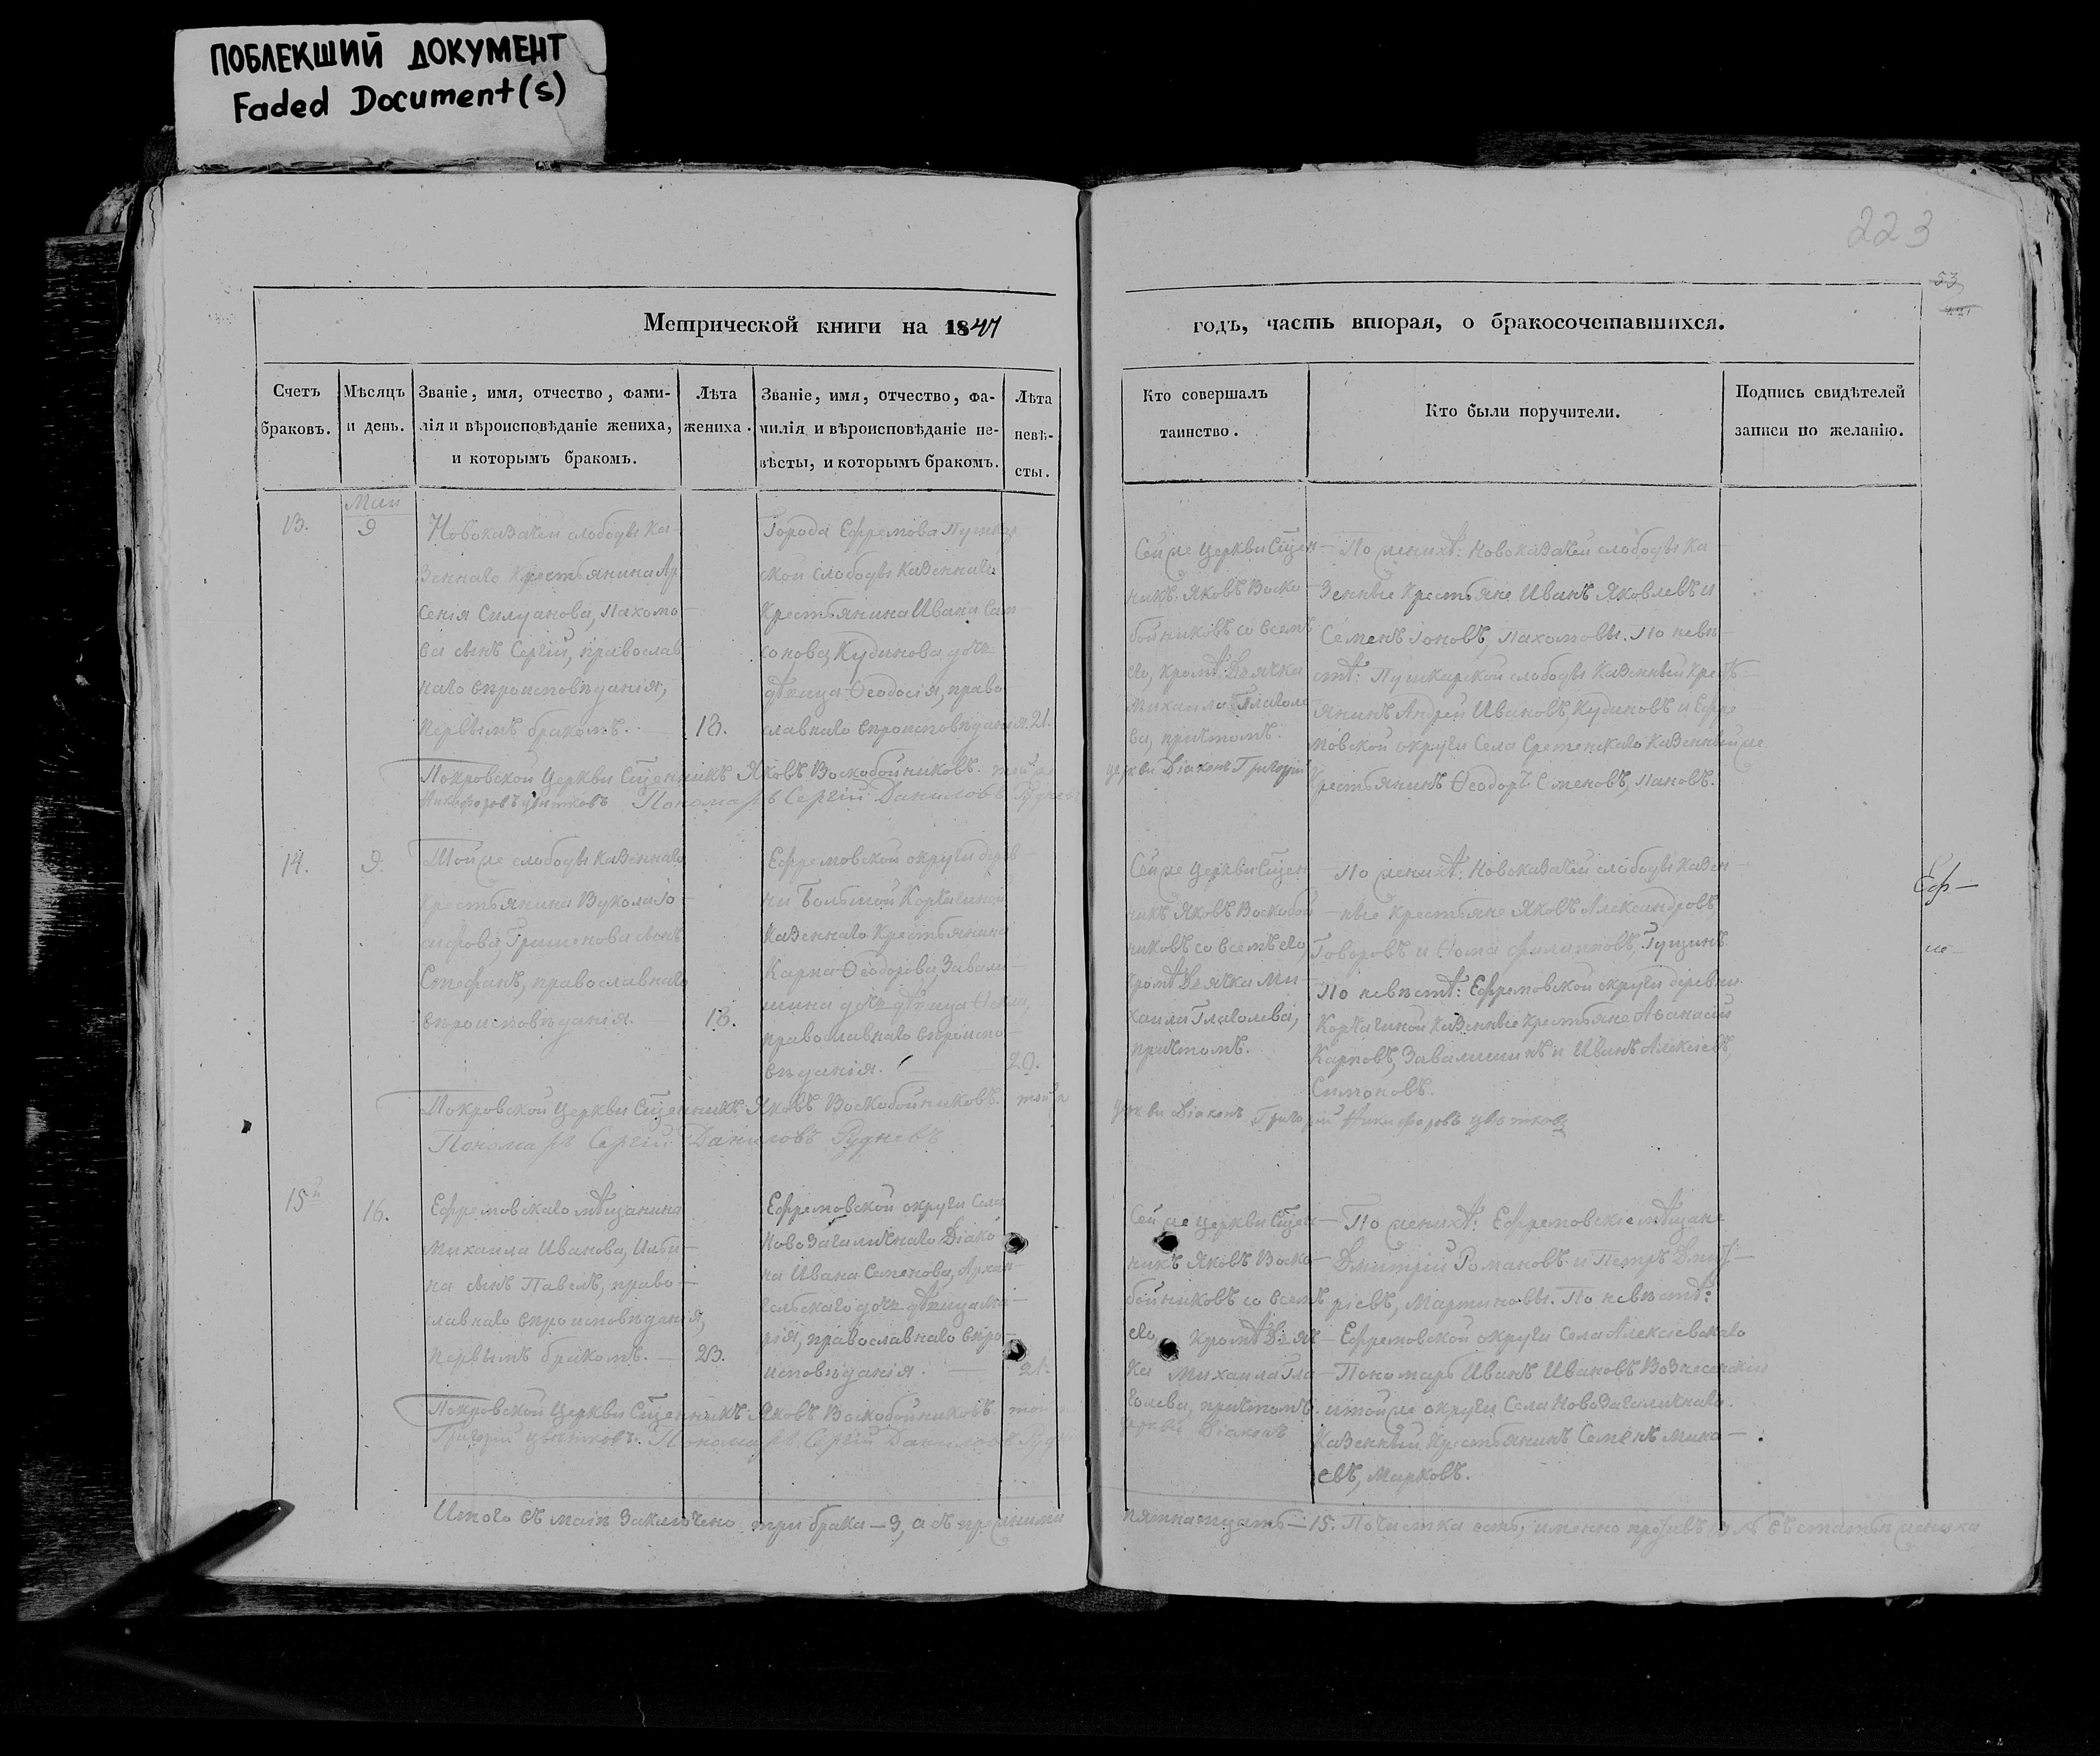 ПОБЛЕКШИЙ ДОКУМЕНТ
Faded Document(s)
223
53
Метрической книги на 1847
годъ, часть вторая, о бракосочетавшихся.
Счетъ
браковъ.
Мѣсяцъ
и день.
Званіе, имя, отчество, фами-
лія и вѣроисповѣданіе жениха,
и которымъ бракомъ.
Лѣта
жениха.
Званіе, имя, отчество, фа-
милія и вѣроисповѣданіе не-
вѣсты, и которымъ бракомъ.
Лѣта
невѣ-
сты.
Кто совершалъ
таинство.
Кто были поручители.
Подпись свидѣтелей
записи по желанію.
13.
Маи
9
Новоказачей слободы ка-
зеннаго крестьянина Ар-
сенія Силуанова, Пахомо-
ва сынъ Сергій, православ-
наго вѣроисповѣданія,
первымъ бракомъ.
18.
Города Ефремова Пушкар
ской слободы казеннаго
крестьянина Ивана Сам-
сонова, Кудинова дочь
дѣвица Ѳеодосія, право-
славнаго вѣроисповѣданія.
21.
Сей же Церкви Сщен-
никъ Яковъ Воско-
бойниковъ со всемъ
его, кромѣ Дьячка
Михаила Глаголе
ва, причтомъ.
По женихѣ: Новоказачей слободы ка
зенные крестьяне Иванъ Яковлевъ и
Семенъ Іоновъ, Пахомовы. По невѣ-
стѣ: Пушкарской слободы казенный крест-
янинъ Андрей Ивановъ, Кудиновъ и Ефре-
мовской округи Села Сретенскаго казенный же
крестьянинъ Ѳеодоръ Семеновъ, Пановъ.
Покровской Церкви Сщенникъ Яковъ Воскобойниковъ. той же
церкви Діаконъ Григорій
Никифоровъ Цветковъ Пономарь Сергій Даниловъ Рудневъ
14.
9.
Той же слободы казеннаго
крестьянина Вукола Іо-
сифова, Гришенова сынъ
Стефанъ, православнаго
вѣроисповѣданія.
18.
Ефремовской округи дерев-
ни Большой Корчагиной
казеннаго крестьянина
Карпа Ѳеодорова, Завали-
шина дочь дѣвица Ѳекла,
православнаго вѣроиспо-
вѣданія.
20.
Сей же Церкви Сщен-
никъ Яковъ Воскобой-
никовъ со всемъ его,
кромѣ Дьячка Ми-
хаила Глаголева,
причтомъ.
По женихѣ: Новоказачей слободы казен-
ные крестьяне Яковъ Александровъ
Говоровъ и Ѳома Филипповъ, Гущинъ.
По невѣстѣ: Ефремовской округи деревни
Корчагиной казенные крестьяне Аѳанасій
Карповъ, Завалишинъ и Иванъ Алексѣевъ,
Симоновъ.
Еф-
же-
Покровской Церкви Сщенникъ Яковъ Воскобойниковъ. той же
церкви Діаконъ Григорій Никифоровъ Цветковъ
Пономарь Сергій Даниловъ Рудневъ
15й
16.
Ефремовскаго мѣщанина
Михаила Иванова, Ильи-
на сынъ Павелъ, право-
славнаго вѣроисповѣданія,
первымъ бракомъ.
23.
Ефремовской округи Села
Новозагалычнаго Діако-
на Ивана Семенова, Архан-
гельскаго дочь дѣвица Ма-
рія, православнаго вѣро-
исповѣданія.
21.
Сей же Церкви Сщен-
никъ Яковъ Воско-
бойниковъ со всемъ
его, кромѣ Дьяч-
ка Михаила Гла-
голева, причтомъ.
По женихѣ: Ефремовскіе мѣщане
Дмитрій Романовъ и Петръ Дмит-
ріевъ, Мартиновы. По невѣстѣ:
Ефремовской округи Села Алексѣевскаго
Пономарь Иванъ Ивановъ Вознесенскій
и той же округи Села Новозагалычнаго
казенный крестьянинъ Семенъ Мина-
евъ, Марковъ.
Покровской Церкви Сщенникъ Яковъ Воскобойниковъ той же
церкви Діаконъ
Григорій Цветковъ. Пономарь Сергій Даниловъ Рудн
Итого въ маіѣ заключено три брака — 3, а съ прежними
пятнатцать — 15. Почистка есть, именно противъ № въ статьѣ жениха